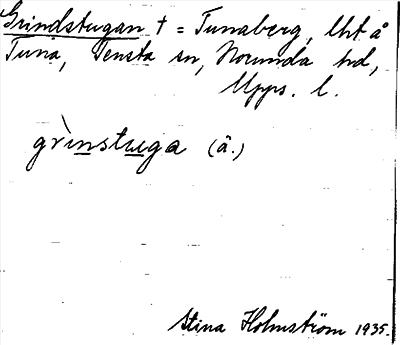 Grindstugan † = Tunaberg, lht å
Tuna, Tensta sn, Norunda hd,
Upps. l.
grìnstuga (å.)
Stina Holmström 1935.